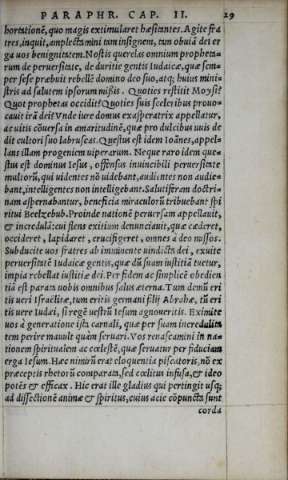 PARAPHR. CAP. II. 29
hortationē, quo magis extimularet hæsitantes. Agite fra
tres, inquit, amplectamini tam insignem, tam obuiā dei er
ga uos benignitatem. Nostis querelas omnium propheta-
rum de peruersitate, de duritie gentis Iudaicæ, quæ sem-
per sese præbuit rebellē domino deo suo, atq; huius mini-
stris ad salutem ipsorum missis. Quoties restitit Moysi?
Quot prophetas occidit? Quoties suis sceleribus prouo-
cauit irā dei? Vnde iure domus exasperatrix appellatur,
ac uitis cōuersa in amaritudinē, quæ pro dulcibus uuis de
dit cultori suo labruscas. Questus est idem Ioānes, appel-
lans illam progeniem uiperarum. Neque raro idem que-
stus est dominus Iesus, offensus inuincibili peruersitate
multorū, qui uidentes nō uidebant, audientes non audie-
bant, intelligentes non intelligebant. Salutiferam doctri-
nam aspernabantur, beneficia miraculorū tribuebant spi
ritui Beelzebub. Proinde nationē peruersam appellauit,
& incredulā: cui flens exitium denunciauit, quæ cæderet,
occideret, lapidaret, crucifigeret, omnes à deo missos.
Subducite uos fratres ab imminente uindicta dei, exuite
peruersitatē Iudaicæ gentis, quæ dū suam iustitiā tuetur,
impia rebellat iustitiæ dei. Per fidem ac simplicē obedien
tiā est parata uobis omnibus salus æterna. Tum demū eri
tis ueri Israelitæ, tum eritis germani filij Abrahæ, tū eri
tis uere Iudæi, si regē uestrū Iesum agnoueritis. Eximite
uos à generatione ista carnali, quæ per suam incredulita
tem perire mauult quàm seruari. Vos renascamini in na-
tionem spiritualem ac cœlestē, quæ seruatur per fiduciam
erga Iesum. Hæc nimirū erat eloquentia piscatoris, nō ex
præceptis rhetorū comparata, sed cœlitus infusa, & ideo
potēs & efficax. Hic erat ille gladius qui pertingit usq;
ad dissectionē animæ & spiritus, cuius acie cōpuncta sunt
corda